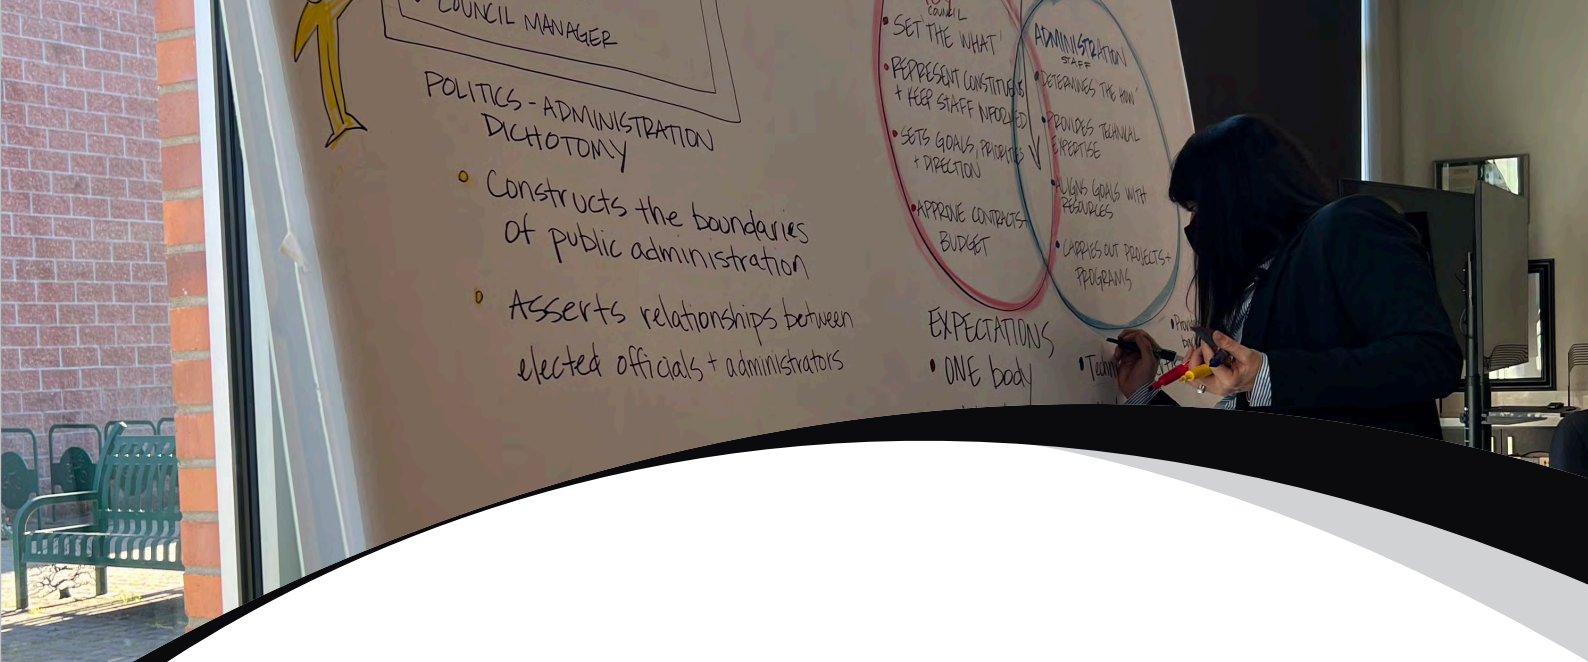 COUNCIL MANAGER
POLITICS - ADMINISTRATION
DICHOTOMY
Constructs the boundaries
of public administration
Asserts relationships between
elected officials + administrators
COUNCIL
• SET 'THE WHAT'
• REPRESENT CONSTITUENTS
+ KEEP STAFF INFORMED
• SETS GOALS, PRIORITIES
+ DIRECTION
• APPROVE CONTRACTS+
BUDGET
ADMINISTRATION
STAFF
• DETERMINES 'THE HOW'
• PROVIDES TECHNICAL
EXPERTISE
• ALIGNS GOALS WITH
RESOURCES
• CARRIES OUT PROJECTS+
PROGRAMS
EXPECTATIONS
• ONE body